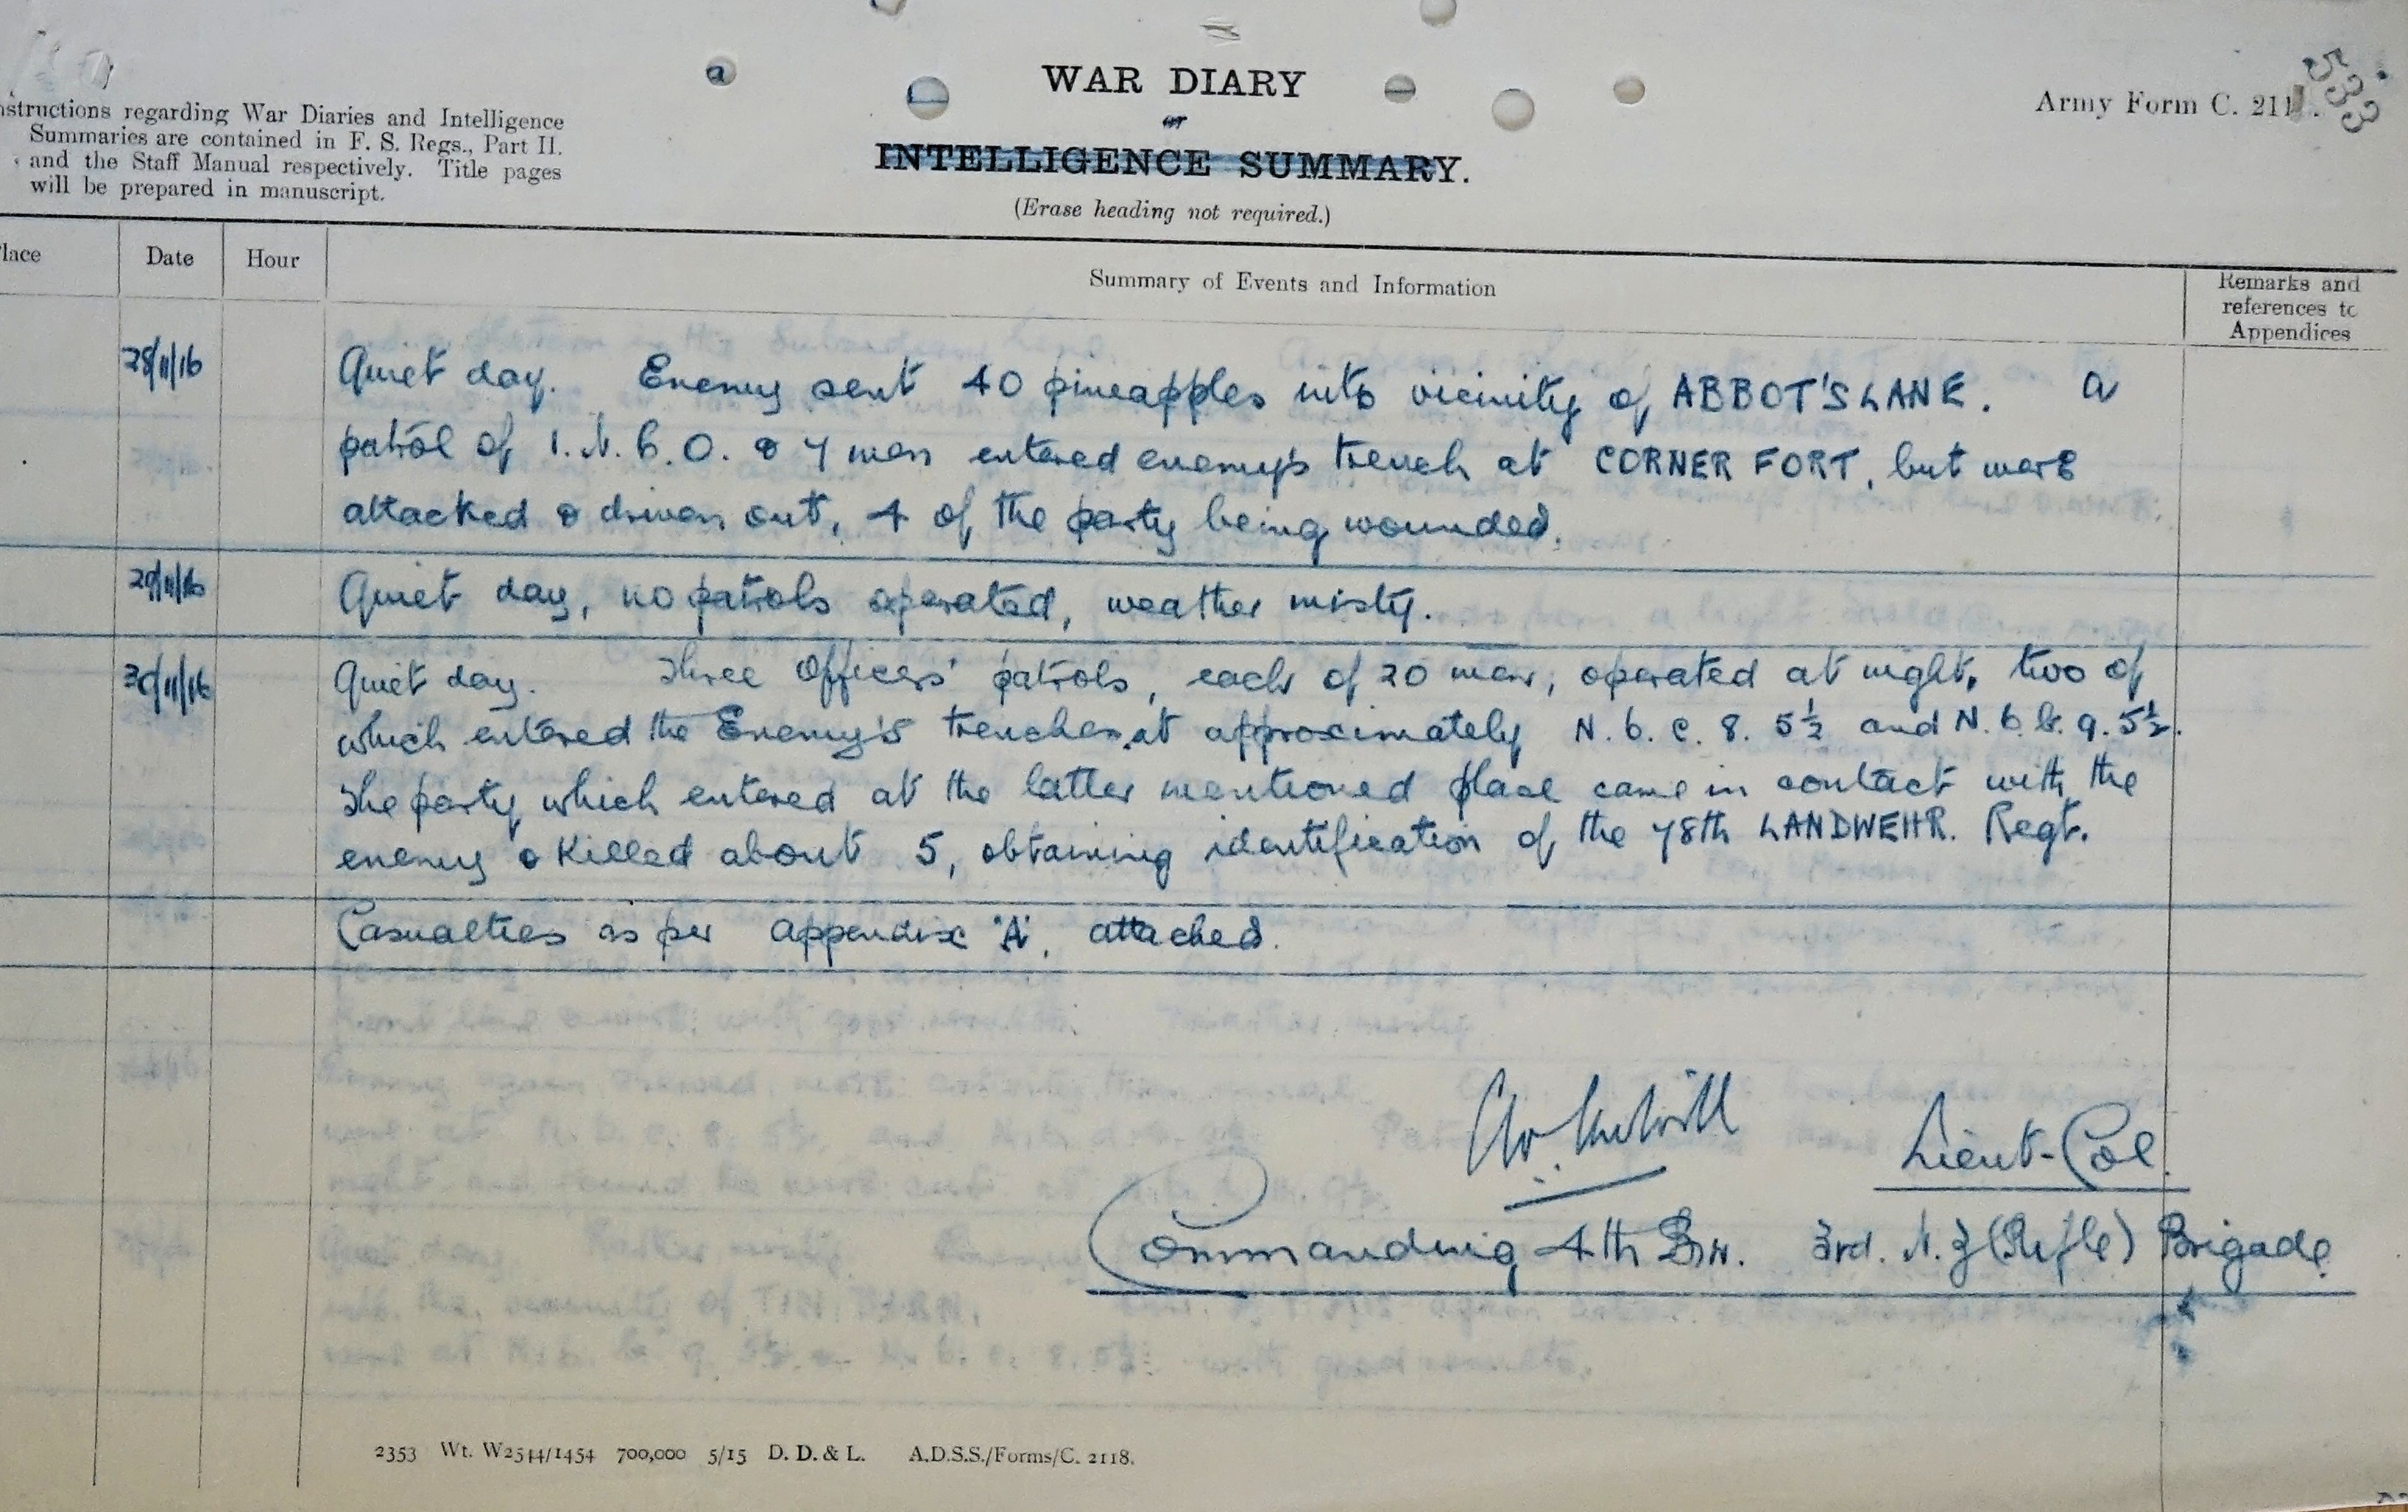 WAR DIARY
or
INTELLIGENCE SUMMARY.
(Erase heading not required.)
Army Form C. 211
533
a
nstructions regarding War Diaries and Intelligence
Summaries are contained in F. S. Regs., Part II.
and the Staff Manual respectively. Title pages
will be prepared in manuscript.
lace Date Hour Summary of Events and Information Remarks and
references to
Appendices
28/11/16 Quiet day. Enemy sent 40 pineapples into vicinity of ABBOT'S LANE. A
patrol of 1. N.C.O. & 7 men entered enemy's trench at CORNER FORT, but were
attacked & driven out, 4 of the party being wounded.
29/11/16 Quiet day, no patrols operated, weather misty.
30/11/16 Quiet day. Three Officers' patrols, each of 20 men, operated at night, two of
which entered the Enemy's trenches at approximately N. 6. c. 8. 5½ and N. 6. b. 9. 5½.
The party which entered at the latter mentioned place came in contact with the
enemy & killed about 5, obtaining identification of the 78th LANDWEHR. Regt.
Casualties as per appendix 'A'. attached.
Lieut-Col.
Commanding 4th Bn. 3rd. N.Z (Rifle) Brigade.
2353 Wt. W2544/1454 700,000 5/15 D. D. & L. A.D.S.S./Forms/C. 2118.